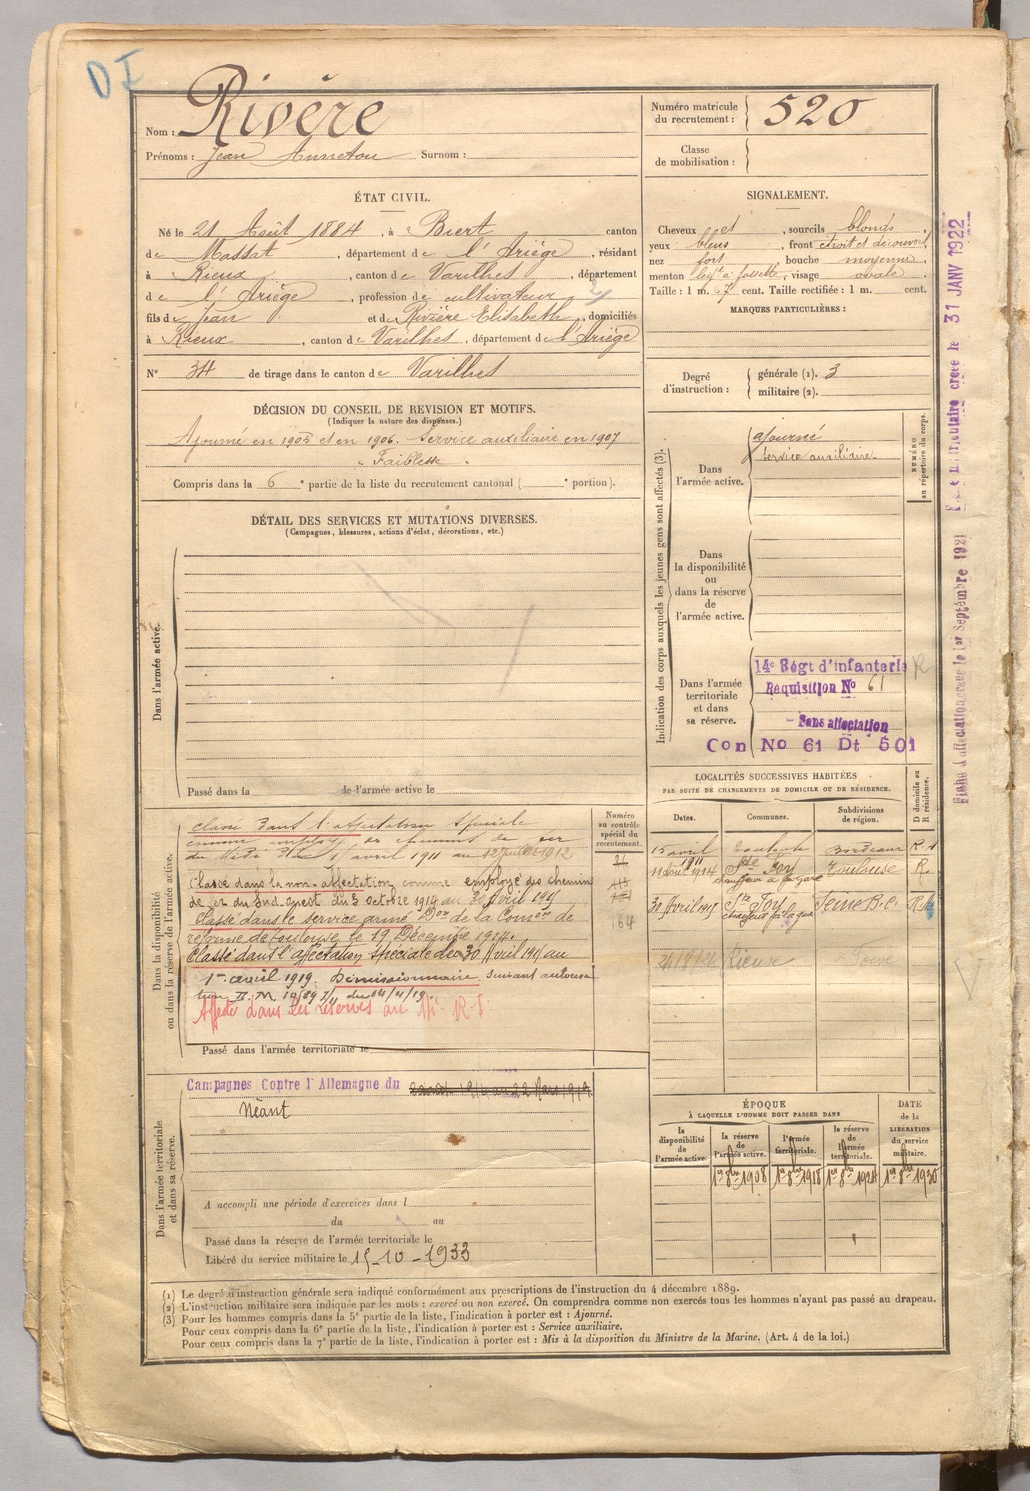 DI
Nom : Rivère
Prénoms : Jean Surnom :
Numéro matricule du recrutement : 520
Classe de mobilisation :
ÉTAT CIVIL.
Né le 21 Août 1884, à Biert canton
de Massat, département de l'Ariège, résidant
à Rieux, canton de Varilhes, département
de l'Ariège, profession de cultivateur
fils de Jean et de Rivière Elisabeth, domiciliés
à Rieux, canton de Varilhes, département de l'Ariège
N° 34 de tirage dans le canton de Varilhes
SIGNALEMENT.
Cheveux et, sourcils blonds
yeux bleus, front étroit et découvert,
nez fort, bouche moyenne,
menton à fossette, visage ovale
Taille : 1 m. 67 cent. Taille rectifiée : 1 m. cent.
MARQUES PARTICULIÈRES :
Degré d'instruction : générale (1). 3
militaire (2).
DÉCISION DU CONSEIL DE REVISION ET MOTIFS.
(Indiquer la nature des dispenses.)
Ajourné en 1905 et en 1906. Service auxiliaire en 1907
« Faiblesse ».
Compris dans la 6e partie de la liste du recrutement cantonal ( e portion).
DÉTAIL DES SERVICES ET MUTATIONS DIVERSES.
(Campagnes, blessures, actions d'éclat, décorations, etc.)
Dans l'armée active.
Passé dans la de l'armée active le
Indication des corps auxquels les jeunes gens sont affectés (3).
NUMÉRO au répertoire du corps.
Dans l'armée active.
ajourné
Service auxiliaire
Dans la disponibilité ou dans la réserve de l'armée active.
Dans l'armée territoriale et dans sa réserve.
14e Régt d'infanterie
Réquisition N° 61
Sans affectation
Con No 61 Dt 501
Fiche d'affectation créée le 1er Septembre 1921
créée le 31 JANV 1922
LOCALITÉS SUCCESSIVES HABITÉES
PAR SUITE DE CHANGEMENTS DE DOMICILE OU DE RÉSIDENCE.
Dates. Communes. Subdivisions de région. D domicile ou R résidence.
15 avril 1911 Toulouse Bordeaux R
11 août 1914 Ste Foy Toulouse R.
31 Avril 1915 Ste Foy
Rieux Foix
Dans la disponibilité ou dans la réserve de l'armée active.
Numéro au contrôle spécial du recrutement.
164
Classé dans l'affectation spéciale
comme employé de chemins de fer
du Midi 1 avril 1911 au 12 juillet 1912
Classé dans la non-affectation comme employé des chemins
de fer du Sud-Ouest du 5 octobre 1914 au
Classé dans le service armé Don de la Comon de
réforme de Toulouse le 19 Décembre 1914.
Classé dans l'affectation spéciale du 30 Avril 1915 au
1er avril 1919. Démissionnaire, suivant autorisa
tion
Affecté dans les réserves au
Passé dans l'armée territoriale le
Dans l'armée territoriale et dans sa réserve.
Campagnes Contre l'Allemagne du
Néant
A accompli une période d'exercices dans l
du au
Passé dans la réserve de l'armée territoriale le
Libéré du service militaire le 15-10-1933
ÉPOQUE
À LAQUELLE L'HOMME DOIT PASSER DANS
DATE de la LIBÉRATION du service militaire.
la disponibilité de l'armée active. la réserve de l'armée active. l'armée territoriale. la réserve de l'armée territoriale.
1er 8bre 1908 1er 8bre 1918 1er 8bre 1924 1er 8bre 1930
(1) Le degré d'instruction générale sera indiqué conformément aux prescriptions de l'instruction du 4 décembre 1889.
(2) L'instruction militaire sera indiquée par les mots : exercé ou non exercé. On comprendra comme non exercés tous les hommes n'ayant pas passé au drapeau.
(3) Pour les hommes compris dans la 5e partie de la liste, l'indication à porter est : Ajourné.
Pour ceux compris dans la 6e partie de la liste, l'indication à porter est : Service auxiliaire.
Pour ceux compris dans la 7e partie de la liste, l'indication à porter est : Mis à la disposition du Ministre de la Marine. (Art. 4 de la loi.)